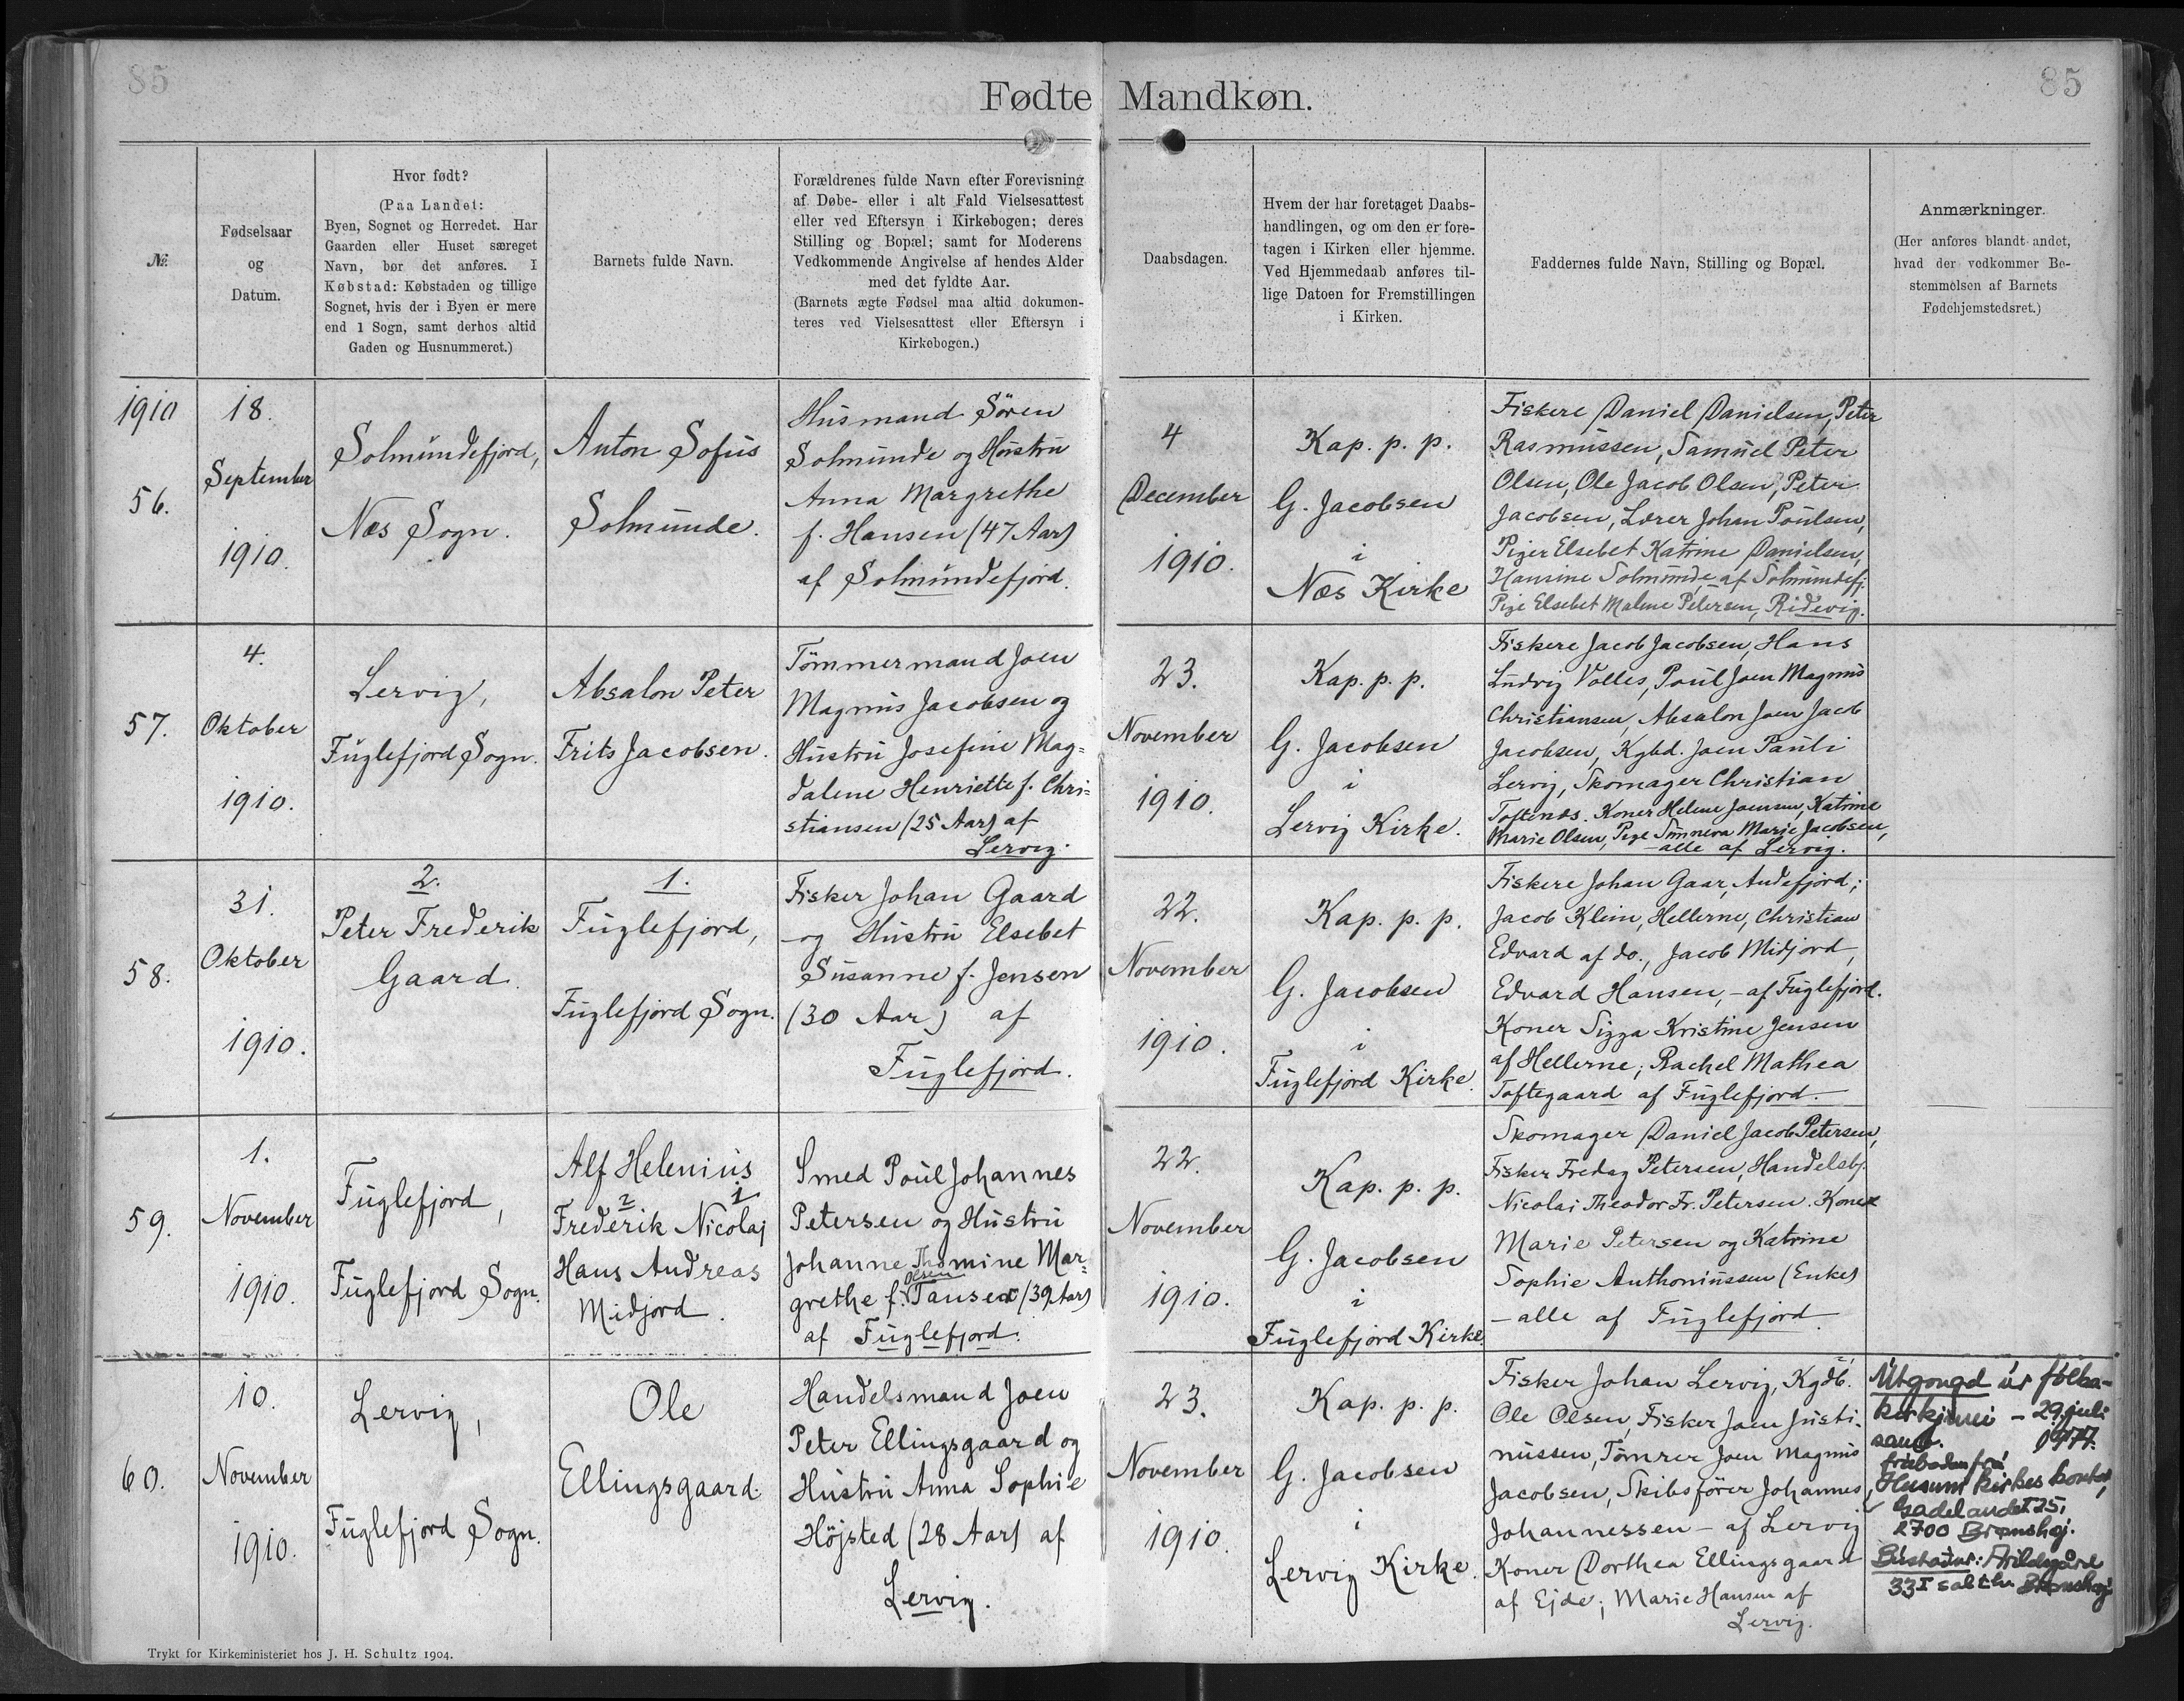 85
85
Fødte Mandkøn.
№
Fødselsaar
og
Datum.
Hvor født?
(Paa Landet:
Byen, Sognet og Herredet. Har
Gaarden eller Huset særeget
Navn, bør det anføres. I
Købstad: Købstaden og tillige
Sognet, hvis der i Byen er mere
end 1 Sogn, samt derhos altid
Gaden og Husnummeret.)
Barnets fulde Navn.
Forældrenes fulde Navn efter Forevisning
af Døbe- eller i alt Fald Vielsesattest
eller ved Eftersyn i Kirkebogen; deres
Stilling og Bopæl; samt for Moderens
Vedkommende Angivelse af hendes Alder
med det fyldte Aar.
(Barnets ægte Fødsel maa altid dokumen-
teres ved Vielsesattest eller Eftersyn i
Kirkebogen.)
Daabsdagen.
Hvem der har foretaget Daabs-
handlingen, og om den er fore-
tagen i Kirken eller hjemme.
Ved Hjemmedaab anføres til-
lige Datoen for Fremstillingen
i Kirken.
Faddernes fulde Navn, Stilling og Bopæl.
Anmærkninger.
(Her anføres blandt andet,
hvad der vedkommer Be-
stemmelsen af Barnets
Fødehjemstedsret.)
1910
56.
18.
September
1910.
Solmundefjord,
Næs Sogn.
Anton Sofus
Solmunde.
Husmand Sören
Solmunde og Hustru
Anna Margrethe
f. Hansen (47 Aar)
af Solmundefjord.
4
December
1910.
Kap. p. p.
G. Jacobsen
i
Næs Kirke
Fiskere Daniel Danielsen, Peter
Rasmussen, Samuel Peter
Olsen, Ole Jacob Olsen, Peter
Jacobsen, Lærer Johan Poulsen,
Piger Elsebet Katrine Danielsen,
Hansine Solmunde af Solmundefj.
Pige Elsebet Malene Petersen, Ridevig.
57.
4.
Oktober
1910.
Lervig,
Fuglefjord Sogn.
Absalon Peter
Frits Jacobsen.
Tömmermand Joen
Magnus Jacobsen og
Hustru Josefine Mag=
dalene Henriette f. Chri=
stiansen (25 Aar) af
Lervig.
23.
November
1910.
Kap. p. p.
G. Jacobsen
i
Lervig Kirke.
Fiskere Jacob Jacobsen, Hans
Ludvig Volles, Poul Joen Magnus
Christiansen, Absalon Joen Jacob
Jacobsen, Kgbd. Joen Pauli
Lervig, Skomager Christian
Toftenæs. Koner Helene Joensen, Katrine
Marie Olsen, Pige Sunneva Marie Jacobsen,
– alle af Lervig.
58.
31.
Oktober
1910.
2.
Peter Frederik
Gaard.
1.
Fuglefjord,
Fuglefjord Sogn.
Fisker Johan Gaard
og Hustru Elsebet
Susanne f. Jensen
(30 Aar) af
Fuglefjord.
22.
November
1910.
Kap. p. p.
G. Jacobsen
i
Fuglefjord Kirke.
Fiskere Johan Gaar, Andefjord;
Jacob Klein, Hellerne, Christian
Edvard af do., Jacob Midjord,
Edvard Hansen, – af Fuglefjord.
Koner Sigga Kristine Jensen
af Hellerne; Rachel Mathea
Toftegaard af Fuglefjord.
59.
1.
November
1910.
Fuglefjord,
Fuglefjord Sogn.
Alf Helenius
2 1
Frederik Nicolaj
Hans Andreas
Midjord.
Smed Poul Johannes
Petersen og Hustru
Johanne Thomine Mar=
Olsen
grethe f. Tausen (39 Aar)
af Fuglefjord.
22.
November
1910.
Kap. p. p.
G. Jacobsen
i
Fuglefjord Kirke.
Skomager Daniel Jacob Petersen,
Fisker Fredag Petersen, Handelsbj.
Nicolai Theodor Fr. Petersen. Koner
Marie Petersen og Katrine
Sophie Anthoniussen (Enke)
– alle af Fuglefjord.
60.
10.
November
1910.
Lervig,
Fuglefjord Sogn.
Ole
Ellingsgaard.
Handelsmand Joen
Peter Ellingsgaard og
Hustru Anna Sophie
Höjsted (28 Aar) af
Lervig.
23.
November
1910.
Kap. p. p.
G. Jacobsen
i
Lervig Kirke.
Fisker Johan Lervig, Kgdb.
Ole Olsen, Fisker Joen Justi-
nussen, Tømrer Joen Magnus
Jacobsen, Skibsförer Johannes
Johannessen – af Lervig
Koner Dorthea Ellingsgaard
af Ejde; Marie Hansen af
Lervig.
Útgongd úr fólka-
kirkjuni – 29. juli
samb. 1977.
fráboðan frá
Husum kirkes kontor,
Gadelandet 25,
2700 Brønshøj.
Bústaður: Arildsgård
33 I sal th. Brønshøj
Trykt for Kirkeministeriet hos J. H. Schultz 1904.